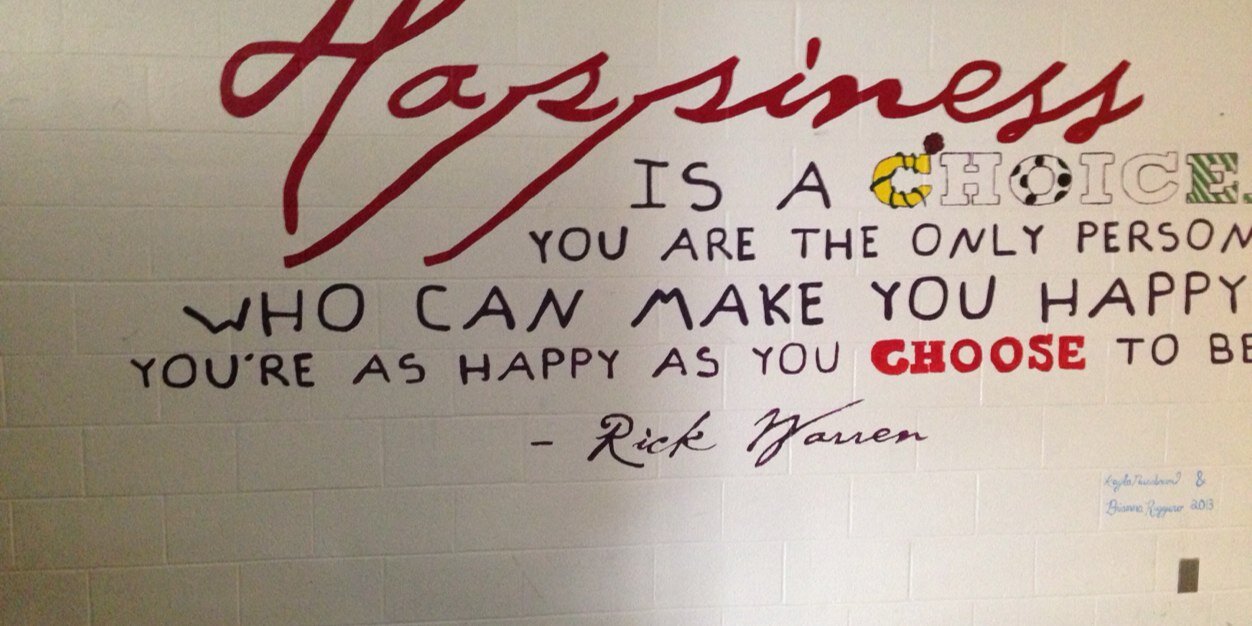 Happiness
IS A CHOICE.
YOU ARE THE ONLY PERSON
WHO CAN MAKE YOU HAPPY
YOU'RE AS HAPPY AS YOU CHOOSE TO BE
- Rick Warren
Kayla &
Brianna Ruggiero 2013